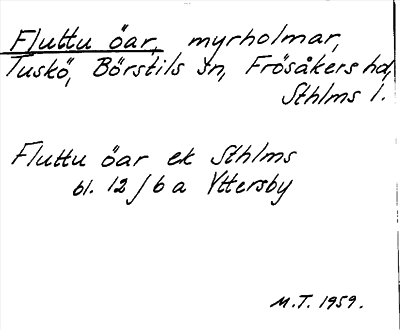 Fluttu öar, myrholmar,
Tuskö, Börstils sn, Frösåkers hd,
Sthlms l.
Fluttu öar ek Sthlms
bl. 12/6 a Yttersby
M.T. 1959.